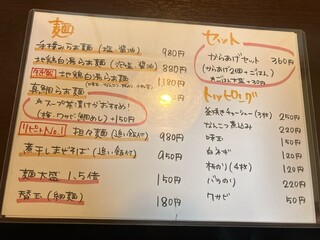 麺
手揉みらぁ麺 (塩・醤油) 980円
地鶏白湯らぁ麺 (塩・醤油) 880円
地鶏白湯らぁ麺 1180円
真鯛らぁ麺
スープ茶漬けがおすすめ!
(梅・ワサビ・鯛めし) +150円
リピートNo.1 担々麺 (追い飯付) 980円
煮干しまぜそば (追い飯付) 950円
麺大盛 1.5倍 150円
替玉 (細麺) 180円
セット
からあげセット 360円
(からあげ2個+ごはん)
ごはん大盛+30円
トッピング
釜焼きチャーシュー(3枚) 250円
なんこつ煮込み 220円
味玉 150円
白ネギ 120円
板のり(4枚) 120円
バラのり 220円
ワサビ 50円